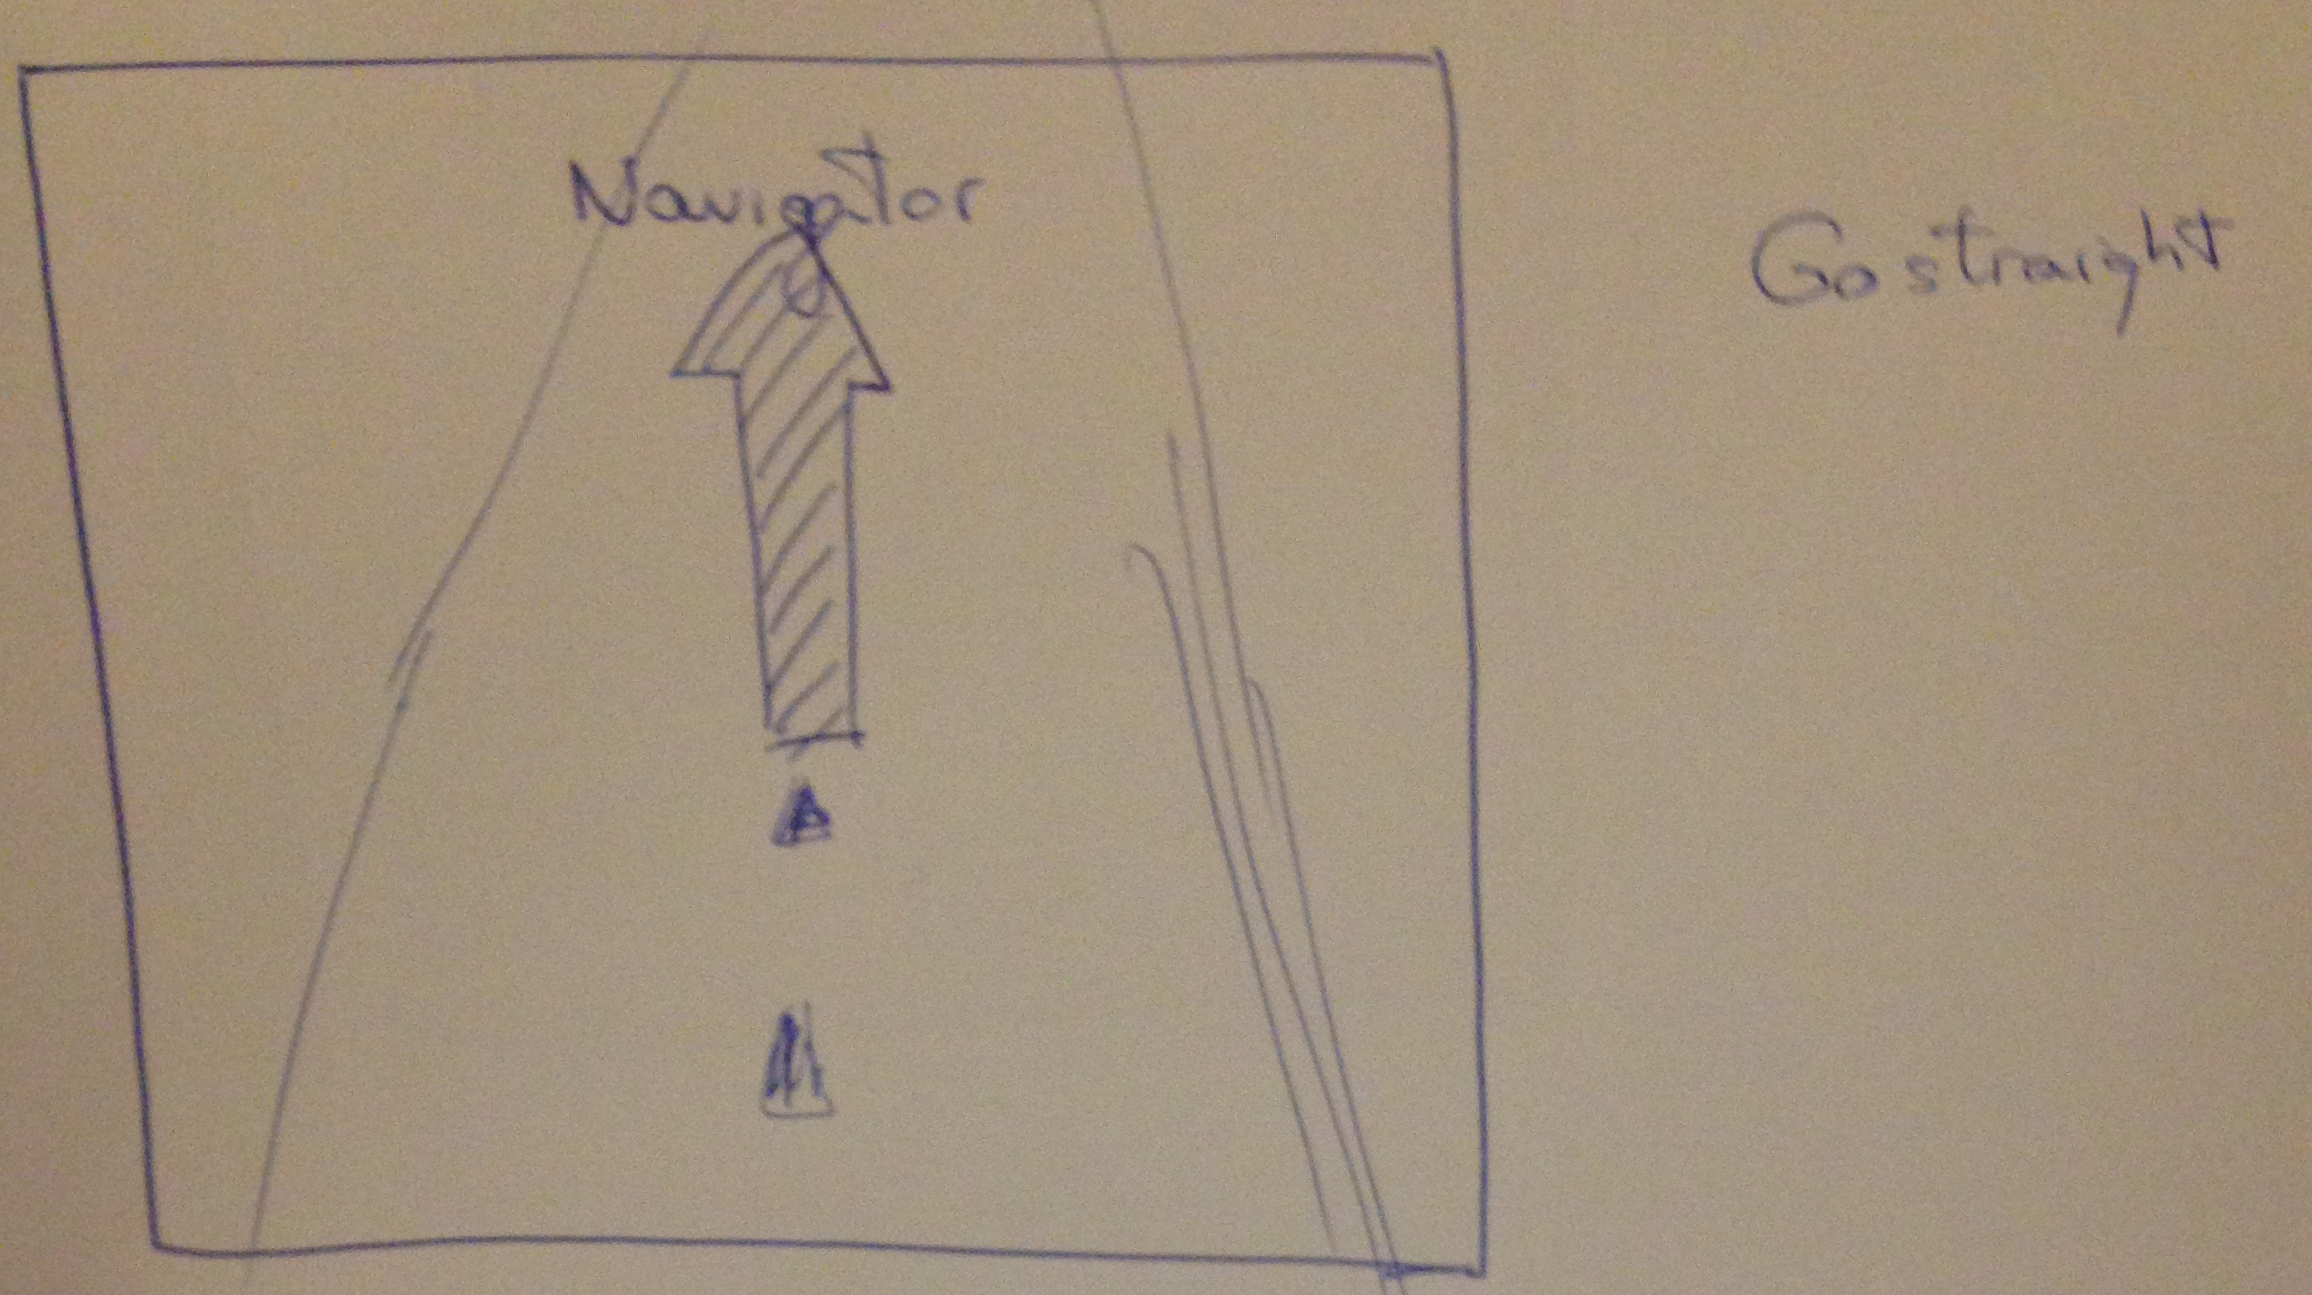 Navigator
Go straight